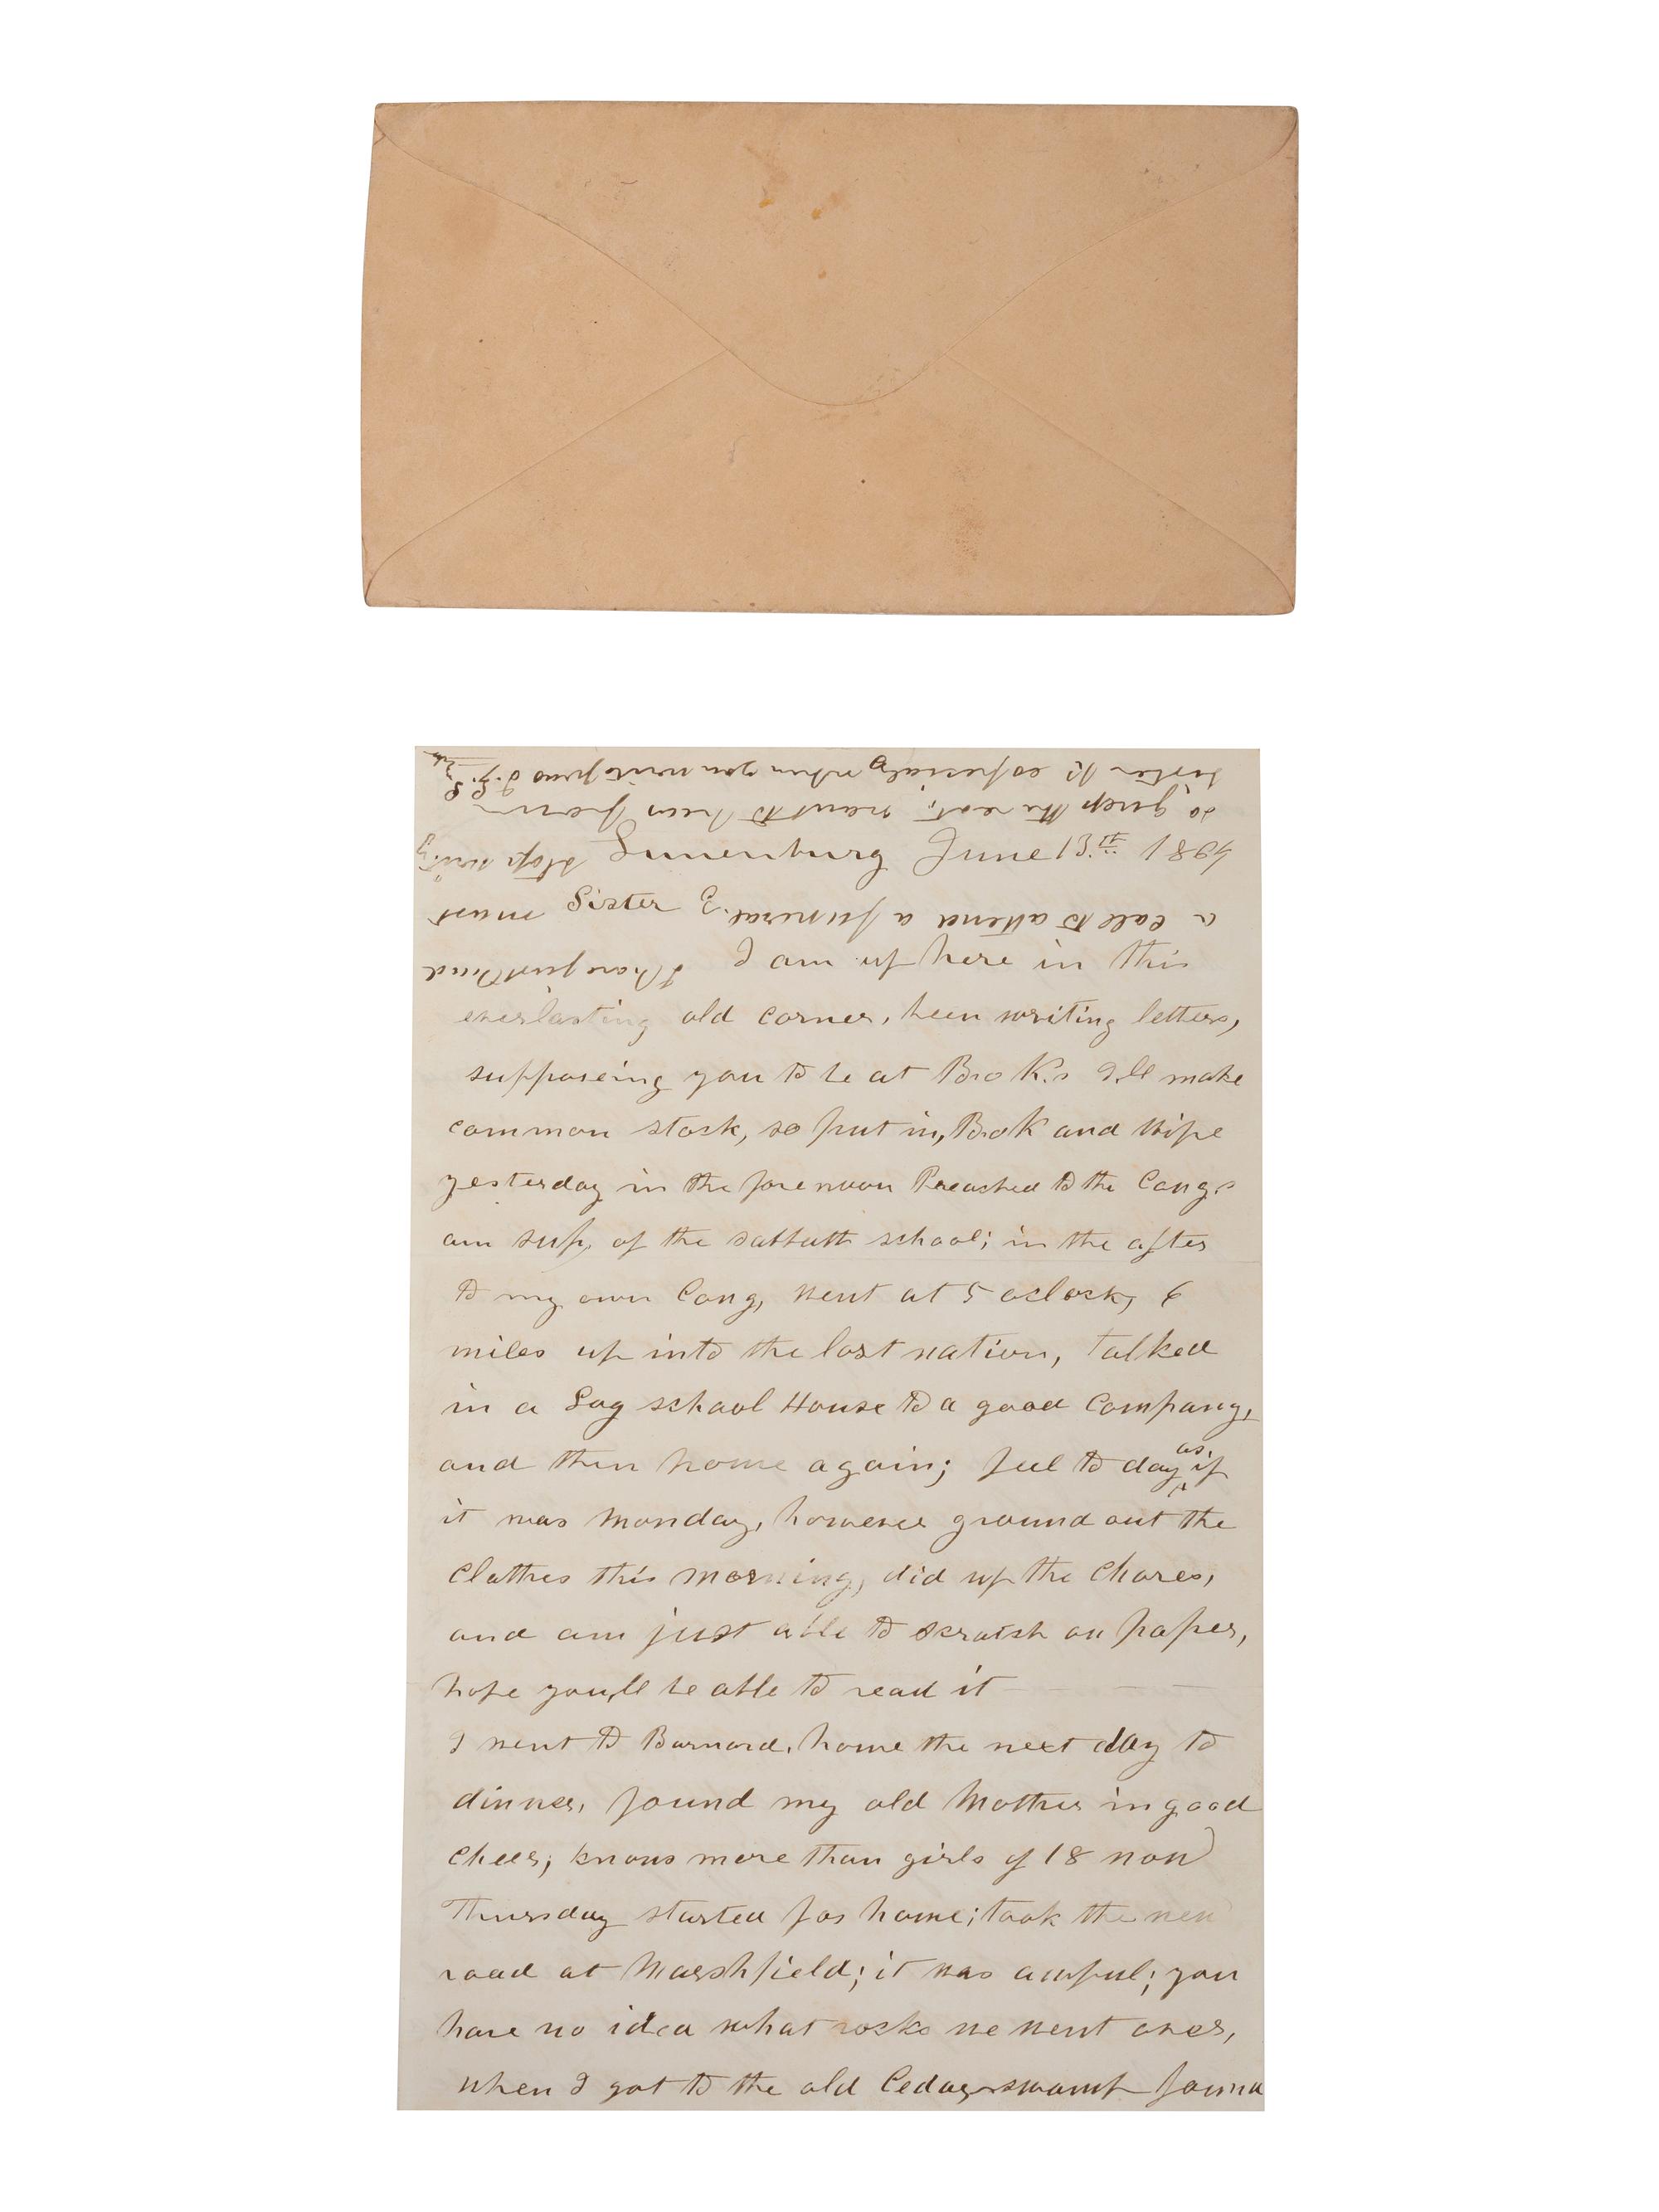 Lunenburg June 13th 1864
Sister E
I am up here in this
everlasting old corner, been writing letters,
supposeing you to be at Bro K.s I,ll make
common stock, so put in, Bro K and Wife
yesterday in the forenoon Preached to the Cong.s
am sup, of the sabbath school; in the after
to my own Cong, went at 5 oclock, 6
miles up into the lost nation, talked
in a Log school House to a good company,
and then home again; feel to day as if
it was Monday, however ground out the
clothes this morning, did up the chores,
and am just able to scratch on paper,
hope you,ll be able to read it
I went to Barnard, home the next day to
dinner, found my old Mother in good
cheer; knows more than girls of 18 now
Thursday started for home; took the new
road at Marshfield; it was awful; you
have no idea what rocks we went over,
when I got to the old Cedar swamp found
I have just had
a call to attend a funeral, must
stop writing
so guess the rest; want to hear from
sister K especialy when you write yours